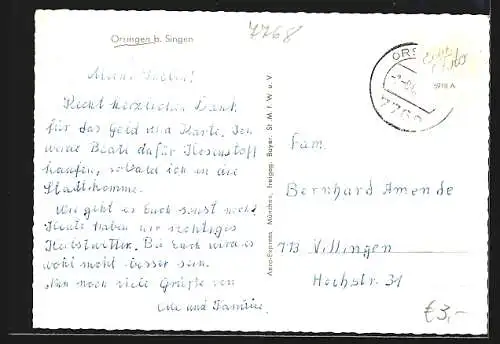 Orsingen b. Singen
7768
Meine Lieben!
Recht herzlichen Dank
für das Geld u. Karte. Ich
werde Beate dafür Hosenstoff
kaufen, sobald ich in die
Stadt komme.
Wie geht es Euch sonst noch?
Heute haben wir richtiges
Herbstwetter. Bei Euch wird es
wohl nicht besser sein.
Nun noch viele Grüße von
und Familie.
Aero-Express München, freigeg. Bayer. St M f W u V
ORS
7768
5918 A
Fam.
Bernhard Amende
773 Villingen
Hochstr. 31
€3,-